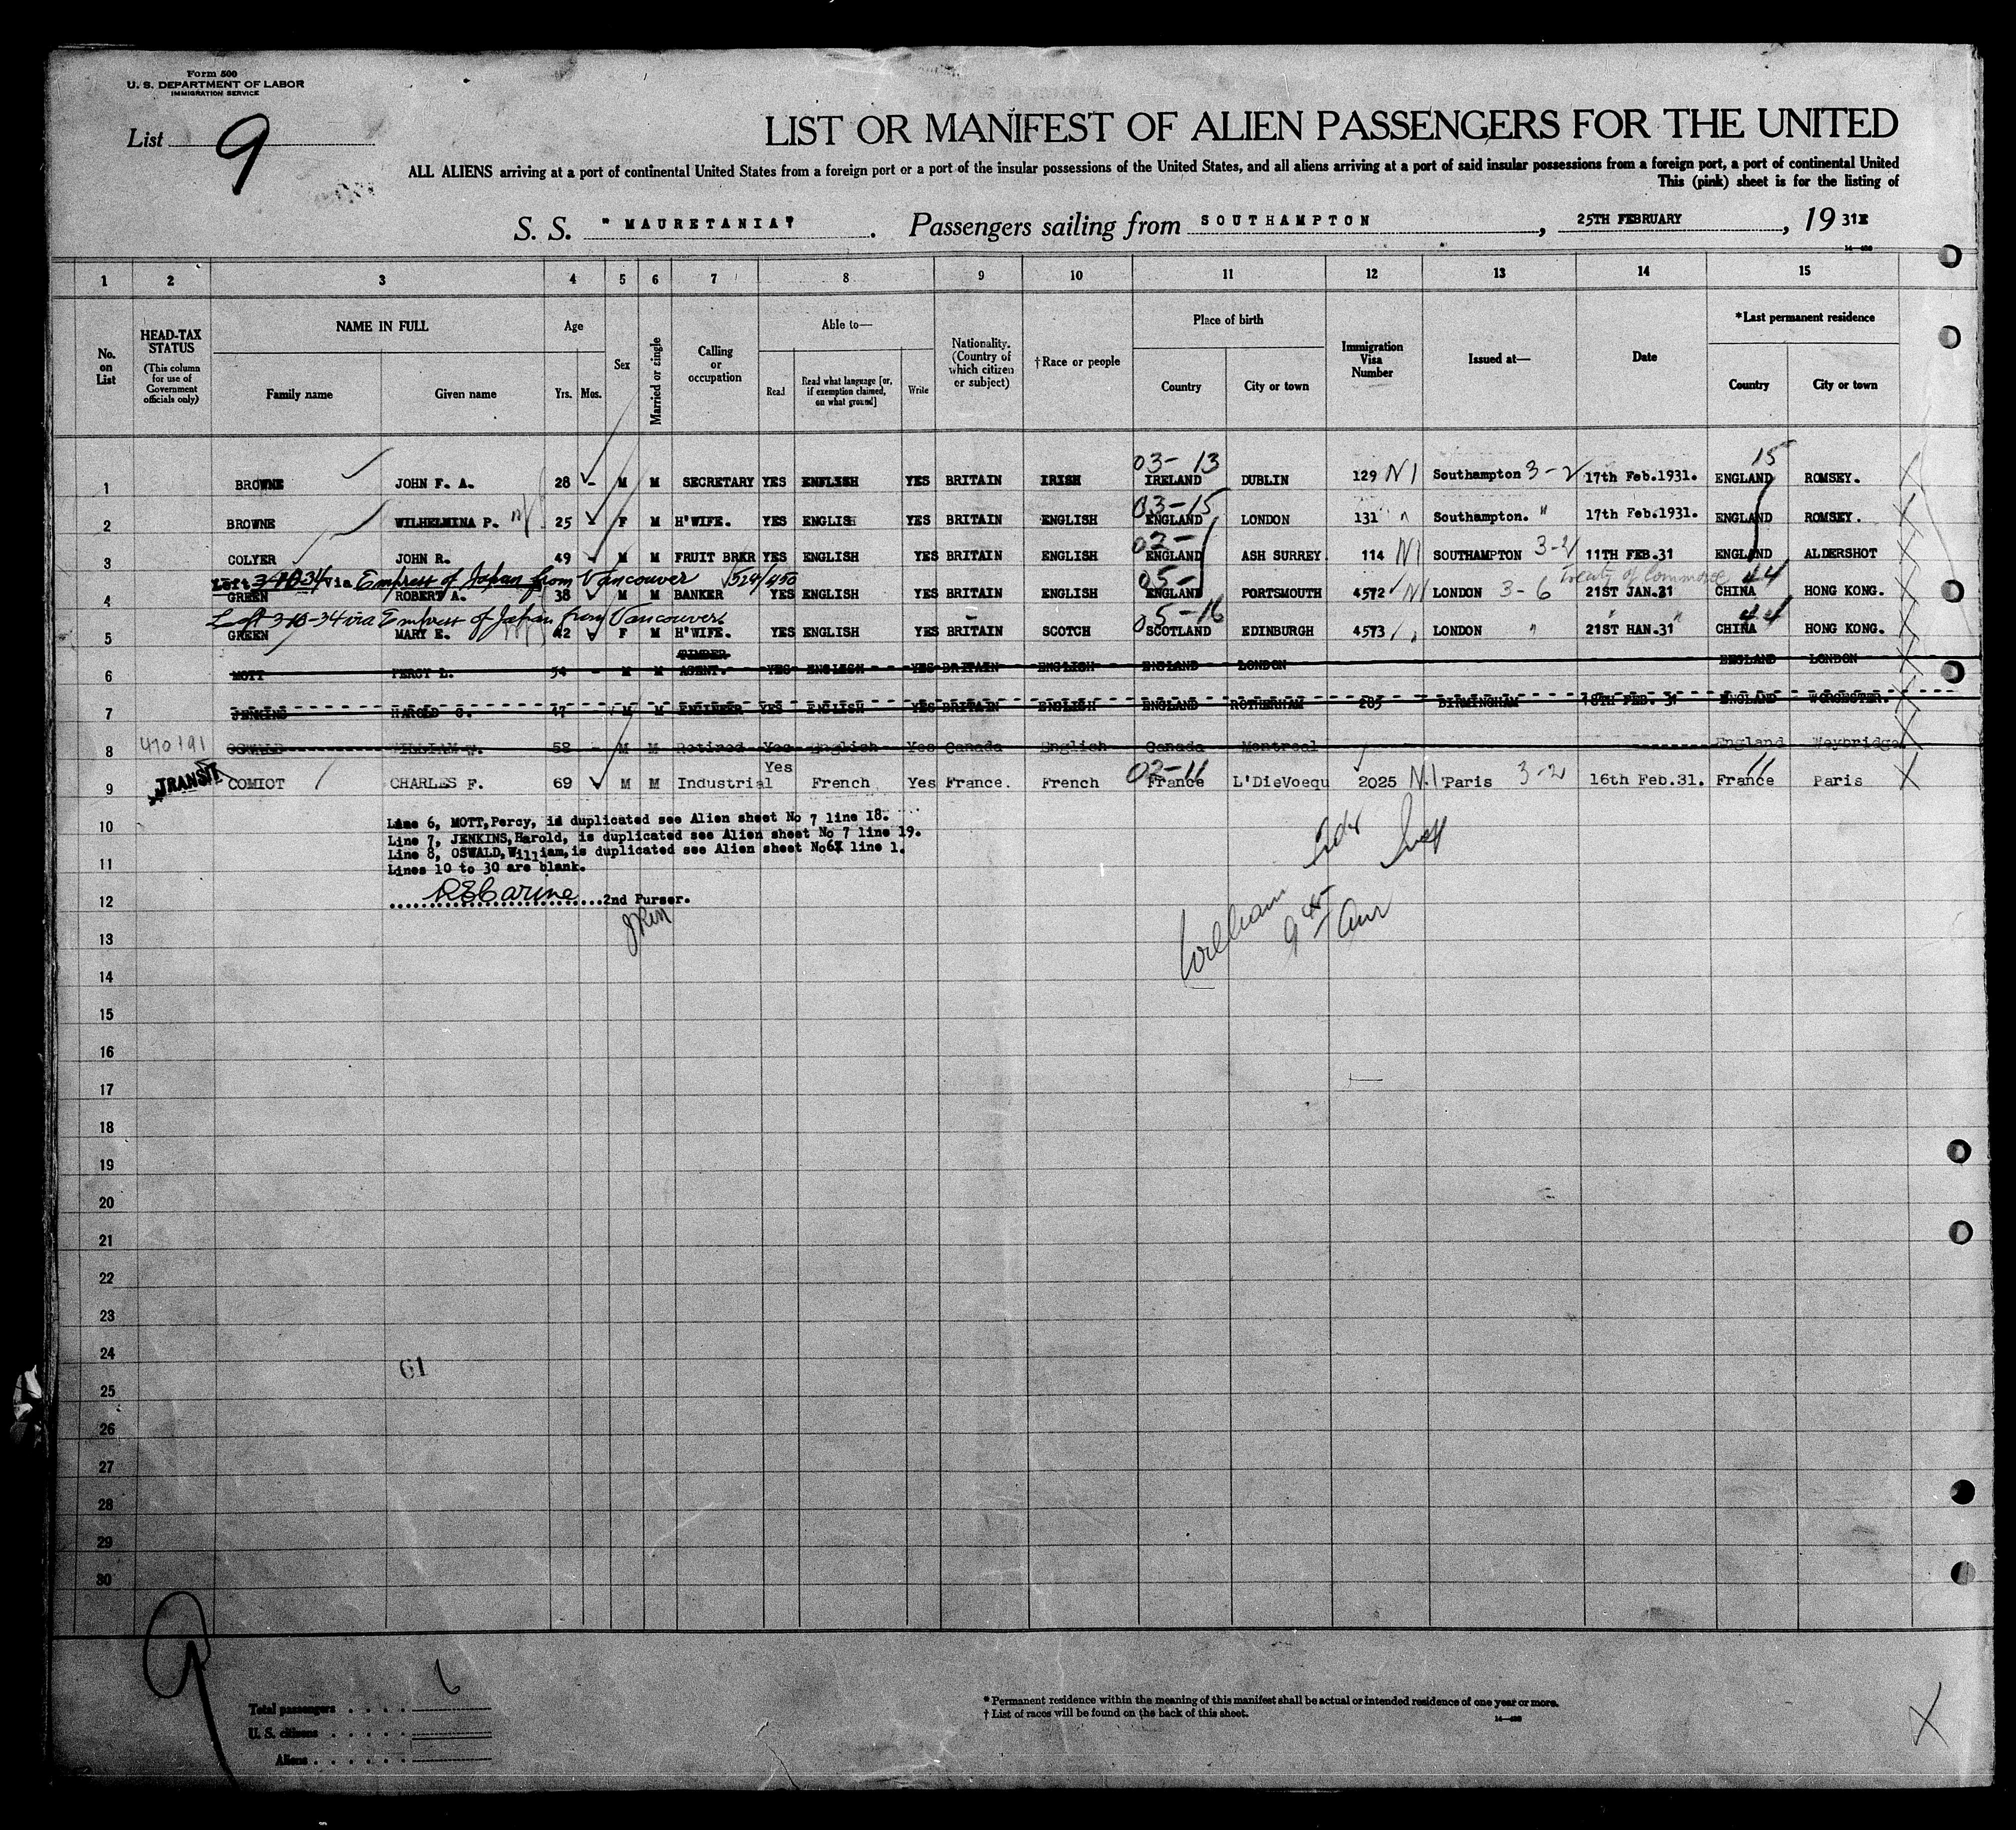 Form 500
U. S. DEPARTMENT OF LABOR
IMMIGRATION SERVICE
List 9
LIST OR MANIFEST OF ALIEN PASSENGERS FOR THE UNITED
ALL ALIENS arriving at a port of continental United States from a foreign port or a port of the insular possessions of the United States, and all aliens arriving at a port of said insular possessions from a foreign port, a port of continental United
This (pink) sheet is for the listing of
S. S. "MAURETANIA" . Passengers sailing from SOUTHAMPTON , 25TH FEBRUARY , 19 31
1 2 3 4 5 6 7 8 9 10 11 12 13 14 15
No. on List
HEAD-TAX STATUS
(This column for use of Government officials only)
NAME IN FULL
Family name Given name
Age
Yrs. Mos.
Sex
Married or single
Calling or occupation
Able to—
Read
Read what language [or, if exemption claimed, on what ground]
Write
Nationality. (Country of which citizen or subject)
†Race or people
Place of birth
Country City or town
Immigration Visa Number
Issued at—
Date
*Last permanent residence
Country City or town
03-13 15
1 BROWNE JOHN F. A. 28 - M M SECRETARY YES ENGLISH YES BRITAIN IRISH IRELAND DUBLIN 129 NI Southampton 3-2 17th Feb.1931. ENGLAND ROMSEY.
03-15
2 BROWNE WILHELMINA P. 25 - F M H'WIFE. YES ENGLISH YES BRITAIN ENGLISH ENGLAND LONDON 131 " Southampton. " 17th Feb.1931. ENGLAND ROMSEY.
02-
3 COLYER JOHN R. 49 - M M FRUIT BRKR YES ENGLISH YES BRITAIN ENGLISH ENGLAND ASH SURREY. 114 NI SOUTHAMPTON 3-2 11TH FEB.31 ENGLAND ALDERSHOT
Left 3-10-34 via Empress of Japan from Vancouver 524/450 05- Treaty of Commerce 44
4 GREEN ROBERT A. 38 M M BANKER YES ENGLISH YES BRITAIN ENGLISH ENGLAND PORTSMOUTH 4572 NI LONDON 3-6 21ST JAN.31 CHINA HONG KONG.
Left 3-10-34 via Empress of Japan from Vancouver 05-16 " " 44
5 GREEN MARY E. 42 F M H'WIFE. YES ENGLISH YES BRITAIN SCOTCH SCOTLAND EDINBURGH 4573 LONDON " 21ST HAN.31 CHINA HONG KONG.
TIMBER
6 MOTT PERCY L. 54 - M M AGENT. YES ENGLISH YES BRITAIN ENGLISH ENGLAND LONDON ENGLAND LONDON
7 JENKINS HAROLD S. 47 M M ENGINEER YES ENGLISH YES BRITAIN ENGLISH ENGLAND ROTHERHAM 285 BIRMINGHAM 18TH FEB. 31 ENGLAND WORCESTER.
8 470191 OSWALD WILLIAM W. 58 - M M Retired Yes English Yes Canada English Canada Montreal England Weybridge
Yes 02-11 11
9 TRANSIT COMIOT CHARLES F. 69 M M Industrial French Yes France. French France L'DieVoequ 2025 N.I Paris 3-2 16th Feb.31. France Paris
10 Line 6, MOTT,Percy, is duplicated see Alien sheet No 7 line 18.
Line 7, JENKINS,Harold, is duplicated see Alien sheet No 7 line 19.
11 Line 8, OSWALD,William,is duplicated see Alien sheet No6 line 1.
Lines 10 to 30 are blank.
12 2nd Purser.
13
14
15
16
17
18
19
20
21
22
23
24
61
25
26
27
28
29
30
9
Total passengers
U. S. citizens
Aliens
* Permanent residence within the meaning of this manifest shall be actual or intended residence of one year or more.
† List of races will be found on the back of this sheet.